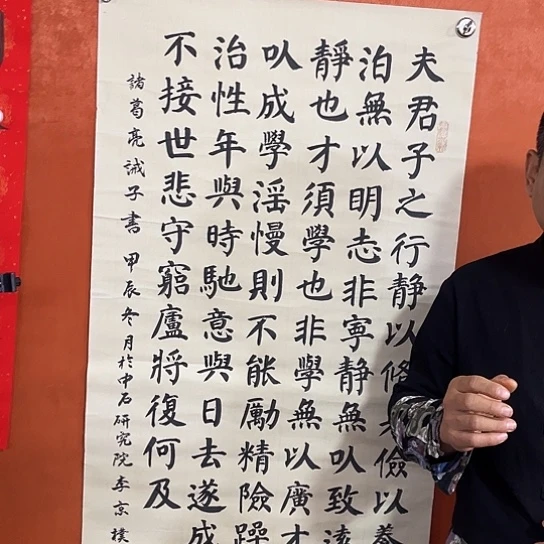 夫君子之行靜以修儉以養
泊無以明志非寧靜無以致遠
靜也才須學也非學無以廣才
以成學滛慢則不能勵精險躁
治性年與時馳意與日去遂成
不接世悲守窮廬將復何及
諸葛亮誡子書 甲辰冬月於中石研究院李京樸